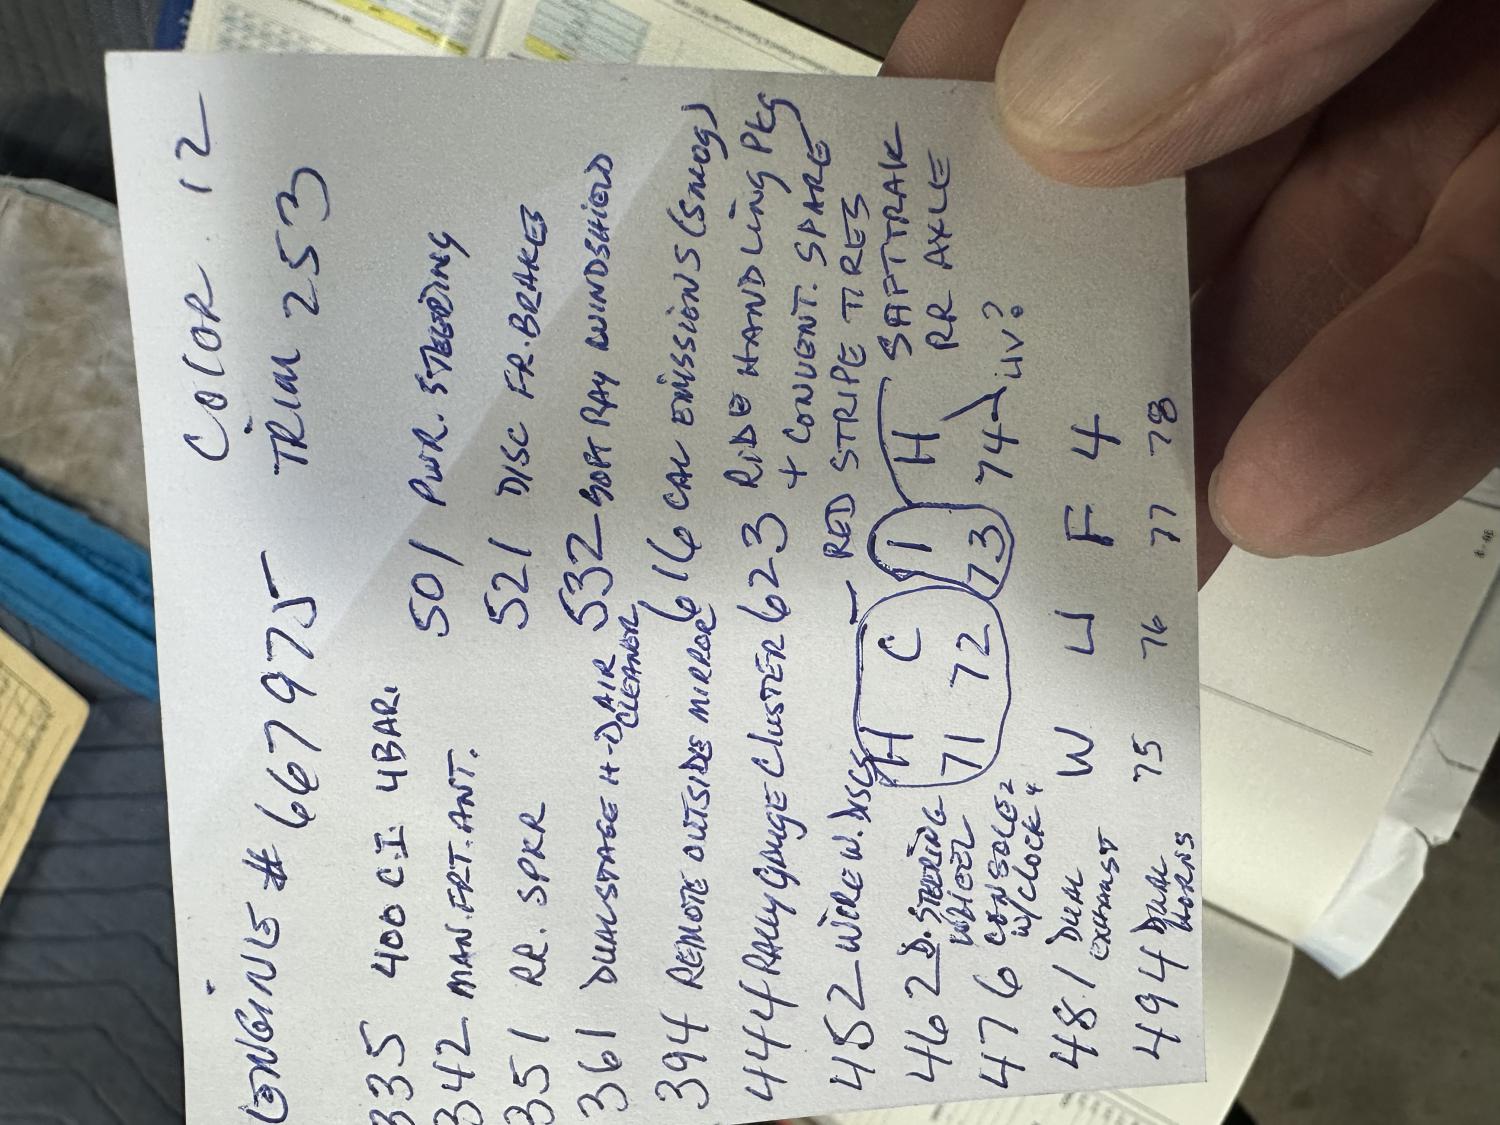 COLOR 12
ENGINE # 667975 TRIM 253
335 400 C.I. 4BAR.
342 MAN. FRT. ANT.
351 RR. SPKR
361 DUAL STAGE H-D AIR CLEANER
394 REMOTE OUTSIDE MIRROR
444 RALLY GAUGE CLUSTER
452 WIRE W. DISCS
462 D. STEERING WHEEL
476 CONSOLE W/CLOCK
481 DUAL EXHAUST
494 DUAL HORNS
501 PWR. STEERING
521 DISC FR. BRAKES
532 SOFT RAY WINDSHIELD
616 CAL EMISSIONS (SMOG)
623 RIDE HANDLING PKG
+ CONVENT. SPARE
RED STRIPE TIRES
SAFTTRAK
RR AXLE
H C I H
71 72 73 74
LIV?
W U F 4
75 76 77 78